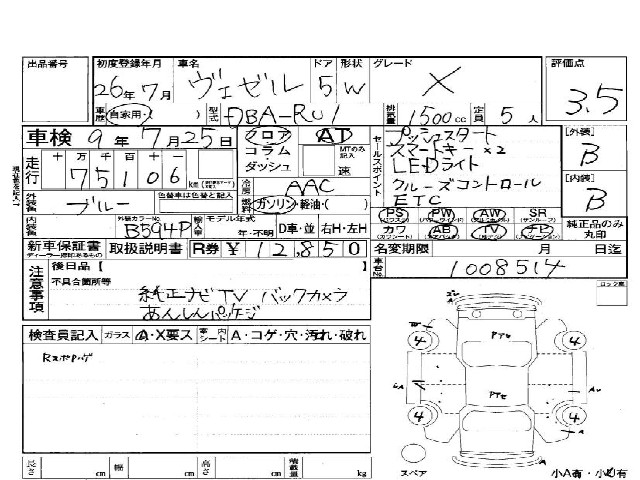 出品番号 初度登録年月 車名 ドア 形状 グレード 評価点
26年 7月 ヴェゼル 5 W X 3.5
車歴 自家用・( ) 型式 DBA-RU1 排気量 1500cc 定員 5人
車検 9年 7月25日 フロア AT セールスポイント プッシュスタート [外装]
走行 十 万 千 百 十 一 コラム MTのみ記入 スマートキー×2 B
75106 km ダッシュ 速 LEDライト
冷房 AAC クルーズコントロール [内装]
外装色 ブルー 色替車は色替と記入 燃料 ガソリン・軽油・( ) ETC B
PS PW AW SR
内装色 外装カラーNo. B594P 輸入車 モデル年式 年・不明 D車・並 右H・左H カワ AB TV ナビ 純正品のみ丸印
新車保証書 取扱説明書 R券 ¥12,850 名変期限 月 日迄
ディーラー印のあるもの
車台No. 1008514
注意事項 後日品【 】
不具合箇所等
純正ナビ TV バックカメラ
あんしんパッケージ
検査員記入 ガラス A・X要ス 車内シート A・コゲ・穴・汚れ・破れ
長さ cm 幅 cm 高さ cm 積載量 kg
4 4
4 4
スペア
小A有・小U有